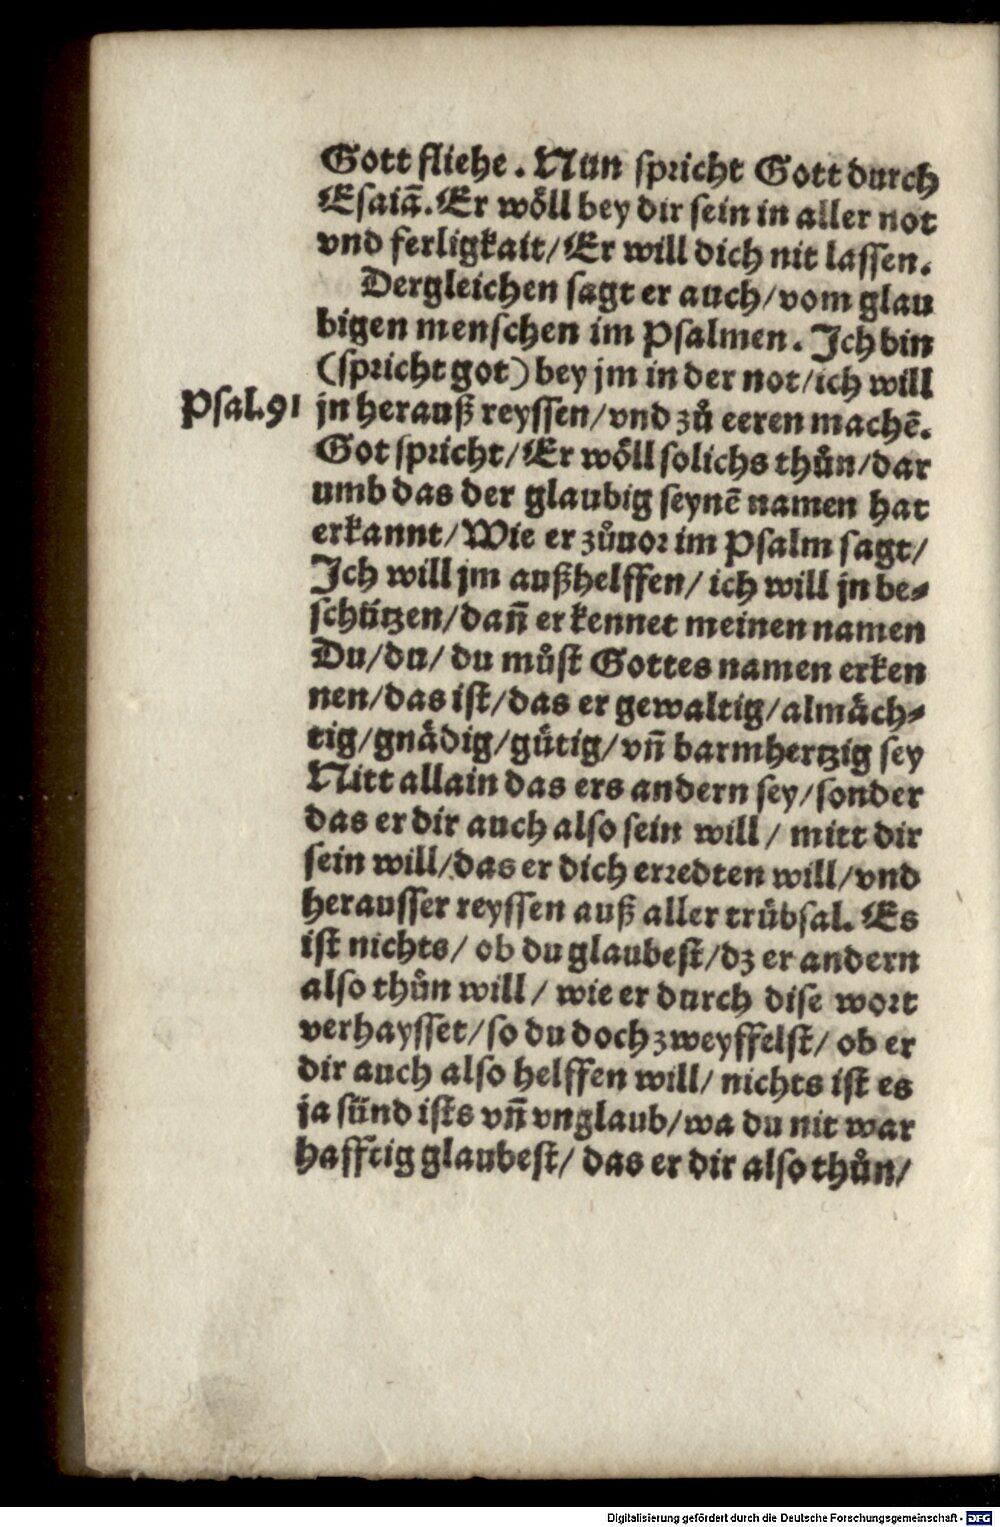 Gott fliehe. Nun spricht Gott durch
Esaiā. Er wöll bey dir sein in aller not
vnd ferligkait/ Er will dich nit lassen.
Dergleichen sagt er auch/ vom glau
bigen menschen im Psalmen. Ich bin
(spricht got) bey jm in der not/ ich will
Psal.91
jn herauß reyssen/ vnd zů eeren machē.
Got spricht/ Er wöll solichs thůn/ dar
umb das der glaubig seynē namen hat
erkannt/ Wie er zůuor im Psalm sagt/
Ich will jm außhelffen/ ich will jn be⸗
schützen/ dañ er kennet meinen namen
Du/ du/ du můst Gottes namen erken
nen/ das ist/ das er gewaltig/ almäch⸗
tig/ gnädig/ gütig/ vñ barmhertzig sey
Nitt allain das ers andern sey/ sonder
das er dir auch also sein will/ mitt dir
sein will/ das er dich erredten will/ vnd
herausser reyssen auß aller trübsal. Es
ist nichts/ ob du glaubest/ dz er andern
also thůn will/ wie er durch dise wort
verhaysset/ so du doch zweyffelst/ ob er
dir auch also helffen will/ nichts ist es
ja sünd ists vñ vnglaub/ wa du nit war
hafftig glaubest/ das er dir also thůn/
Digitalisierung gefördert durch die Deutsche Forschungsgemeinschaft - DFG